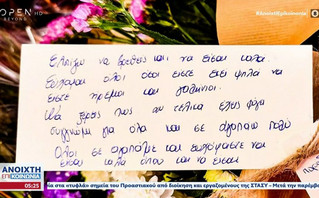 OPEN HD
BEYOND
#AnoixtiEpikoinonia
Ελπίζω να βρεθείς και να είσαι καλά.
Εύχομαι όλοι όσοι είστε εκεί ψηλά να
είστε ήρεμοι και γαλήνιοι.
Να ξέρεις πως αν τελικά έχεις φύγει
συγγνώμη για όλα και σε αγαπάω πολύ
Όλοι σε αγαπάμε και ευχόμαστε να
είσαι καλά όπου και να είσαι
ΑΝΟΙΧΤΗ
ΕΠΙΚΟΙΝΩΝΙΑ
05:25
για στα «τυφλά» σημεία του Προαστιακού από διοίκηση και εργαζομένους της ΣΤΑΣΥ – Μετά την παρέμβα